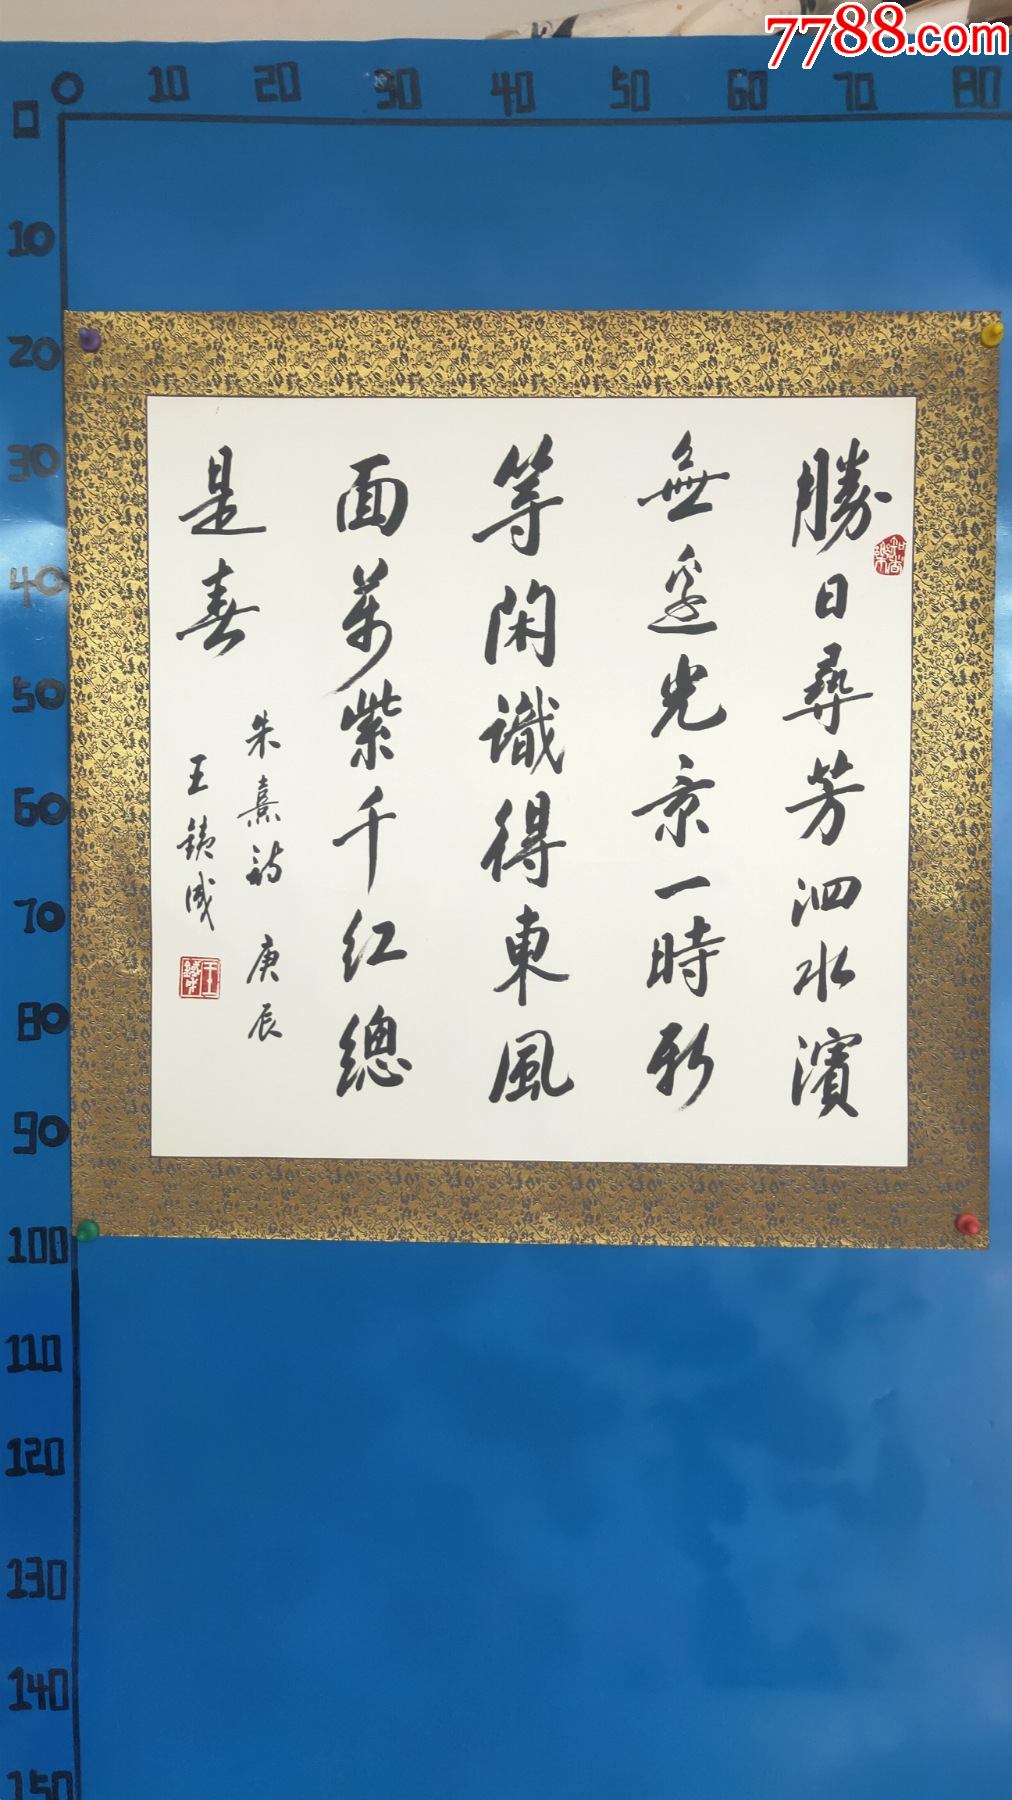 7788.com
0 10 20 30 40 50 60 70 80
0
10
20
30
40
50
60
70
80
90
100
110
120
130
140
150
勝日尋芳泗水濱
無邊光景一時新
等閑識得東風
面萬紫千紅總
是春
朱熹詩 庚辰
王鐵成